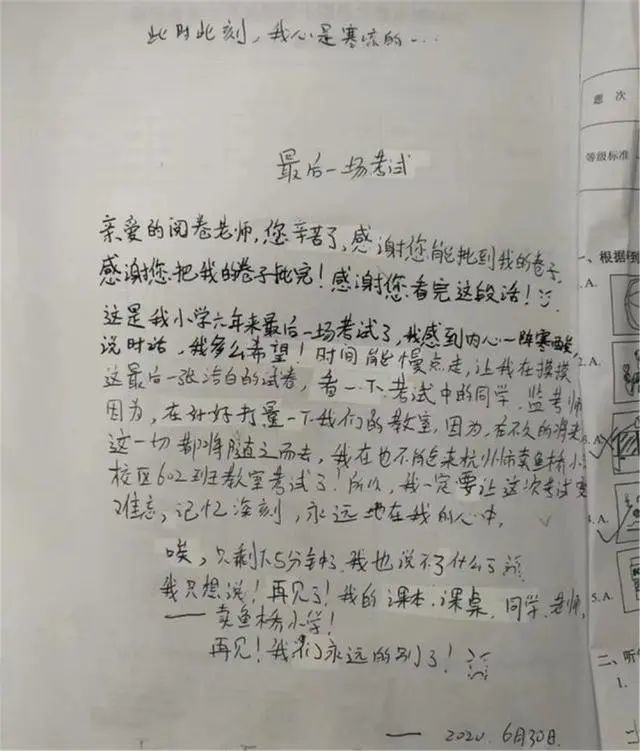 此时此刻，我心是寒凉的…
最后一场考试
亲爱的阅卷老师，您辛苦了，感谢您能批到我的卷子，
感谢您把我的卷子批完！感谢您看完这段话！
这是我小学六年来最后一场考试了，我感到内心一阵寒酸，
说时话，我多么希望！时间能慢点走，让我在摸摸
这最后一张洁白的试卷，看一下考试中的同学、监考师
因为，在好好打量一下我们的教室，因为，在不久的将来
这一切都将随之而去，我在也不能来杭州师卖鱼桥小
校区602班教室考试了！所以，我一定要让这次考试变
难忘，记忆深刻，永远地在我的心中。
唉，只剩下5分钟了，我也说不了什么了
我只想说！再见了！我的课本、课桌、同学、老师，
——卖鱼桥小学！
再见！我们永远的别了！
——2020.6月30日
题次
等级标准
一、根据
1.A.
2.A.
3.A.
4.A.
5.A.
二、听
1.